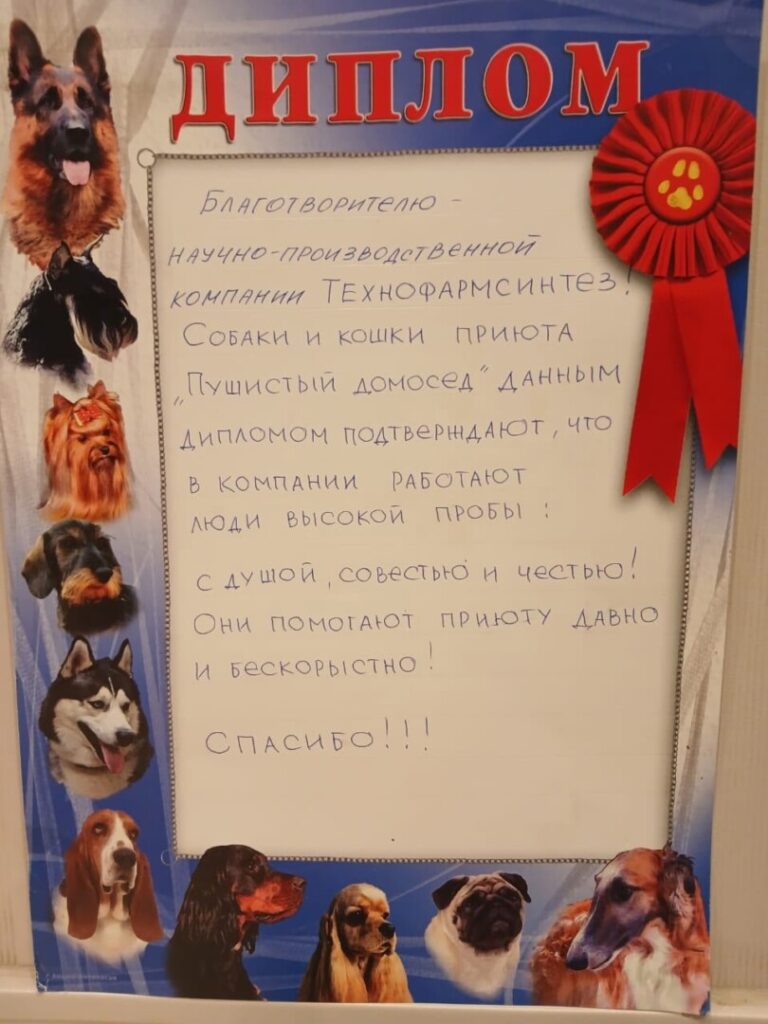 ДИПЛОМ
Благотворителю -
научно-производственной
компании Технофармсинтез!
Собаки и кошки приюта
„Пушистый домосед“ данным
дипломом подтверждают, что
в компании работают
люди высокой пробы:
с душой, совестью и честью!
Они помогают приюту давно
и бескорыстно!
Спасибо!!!